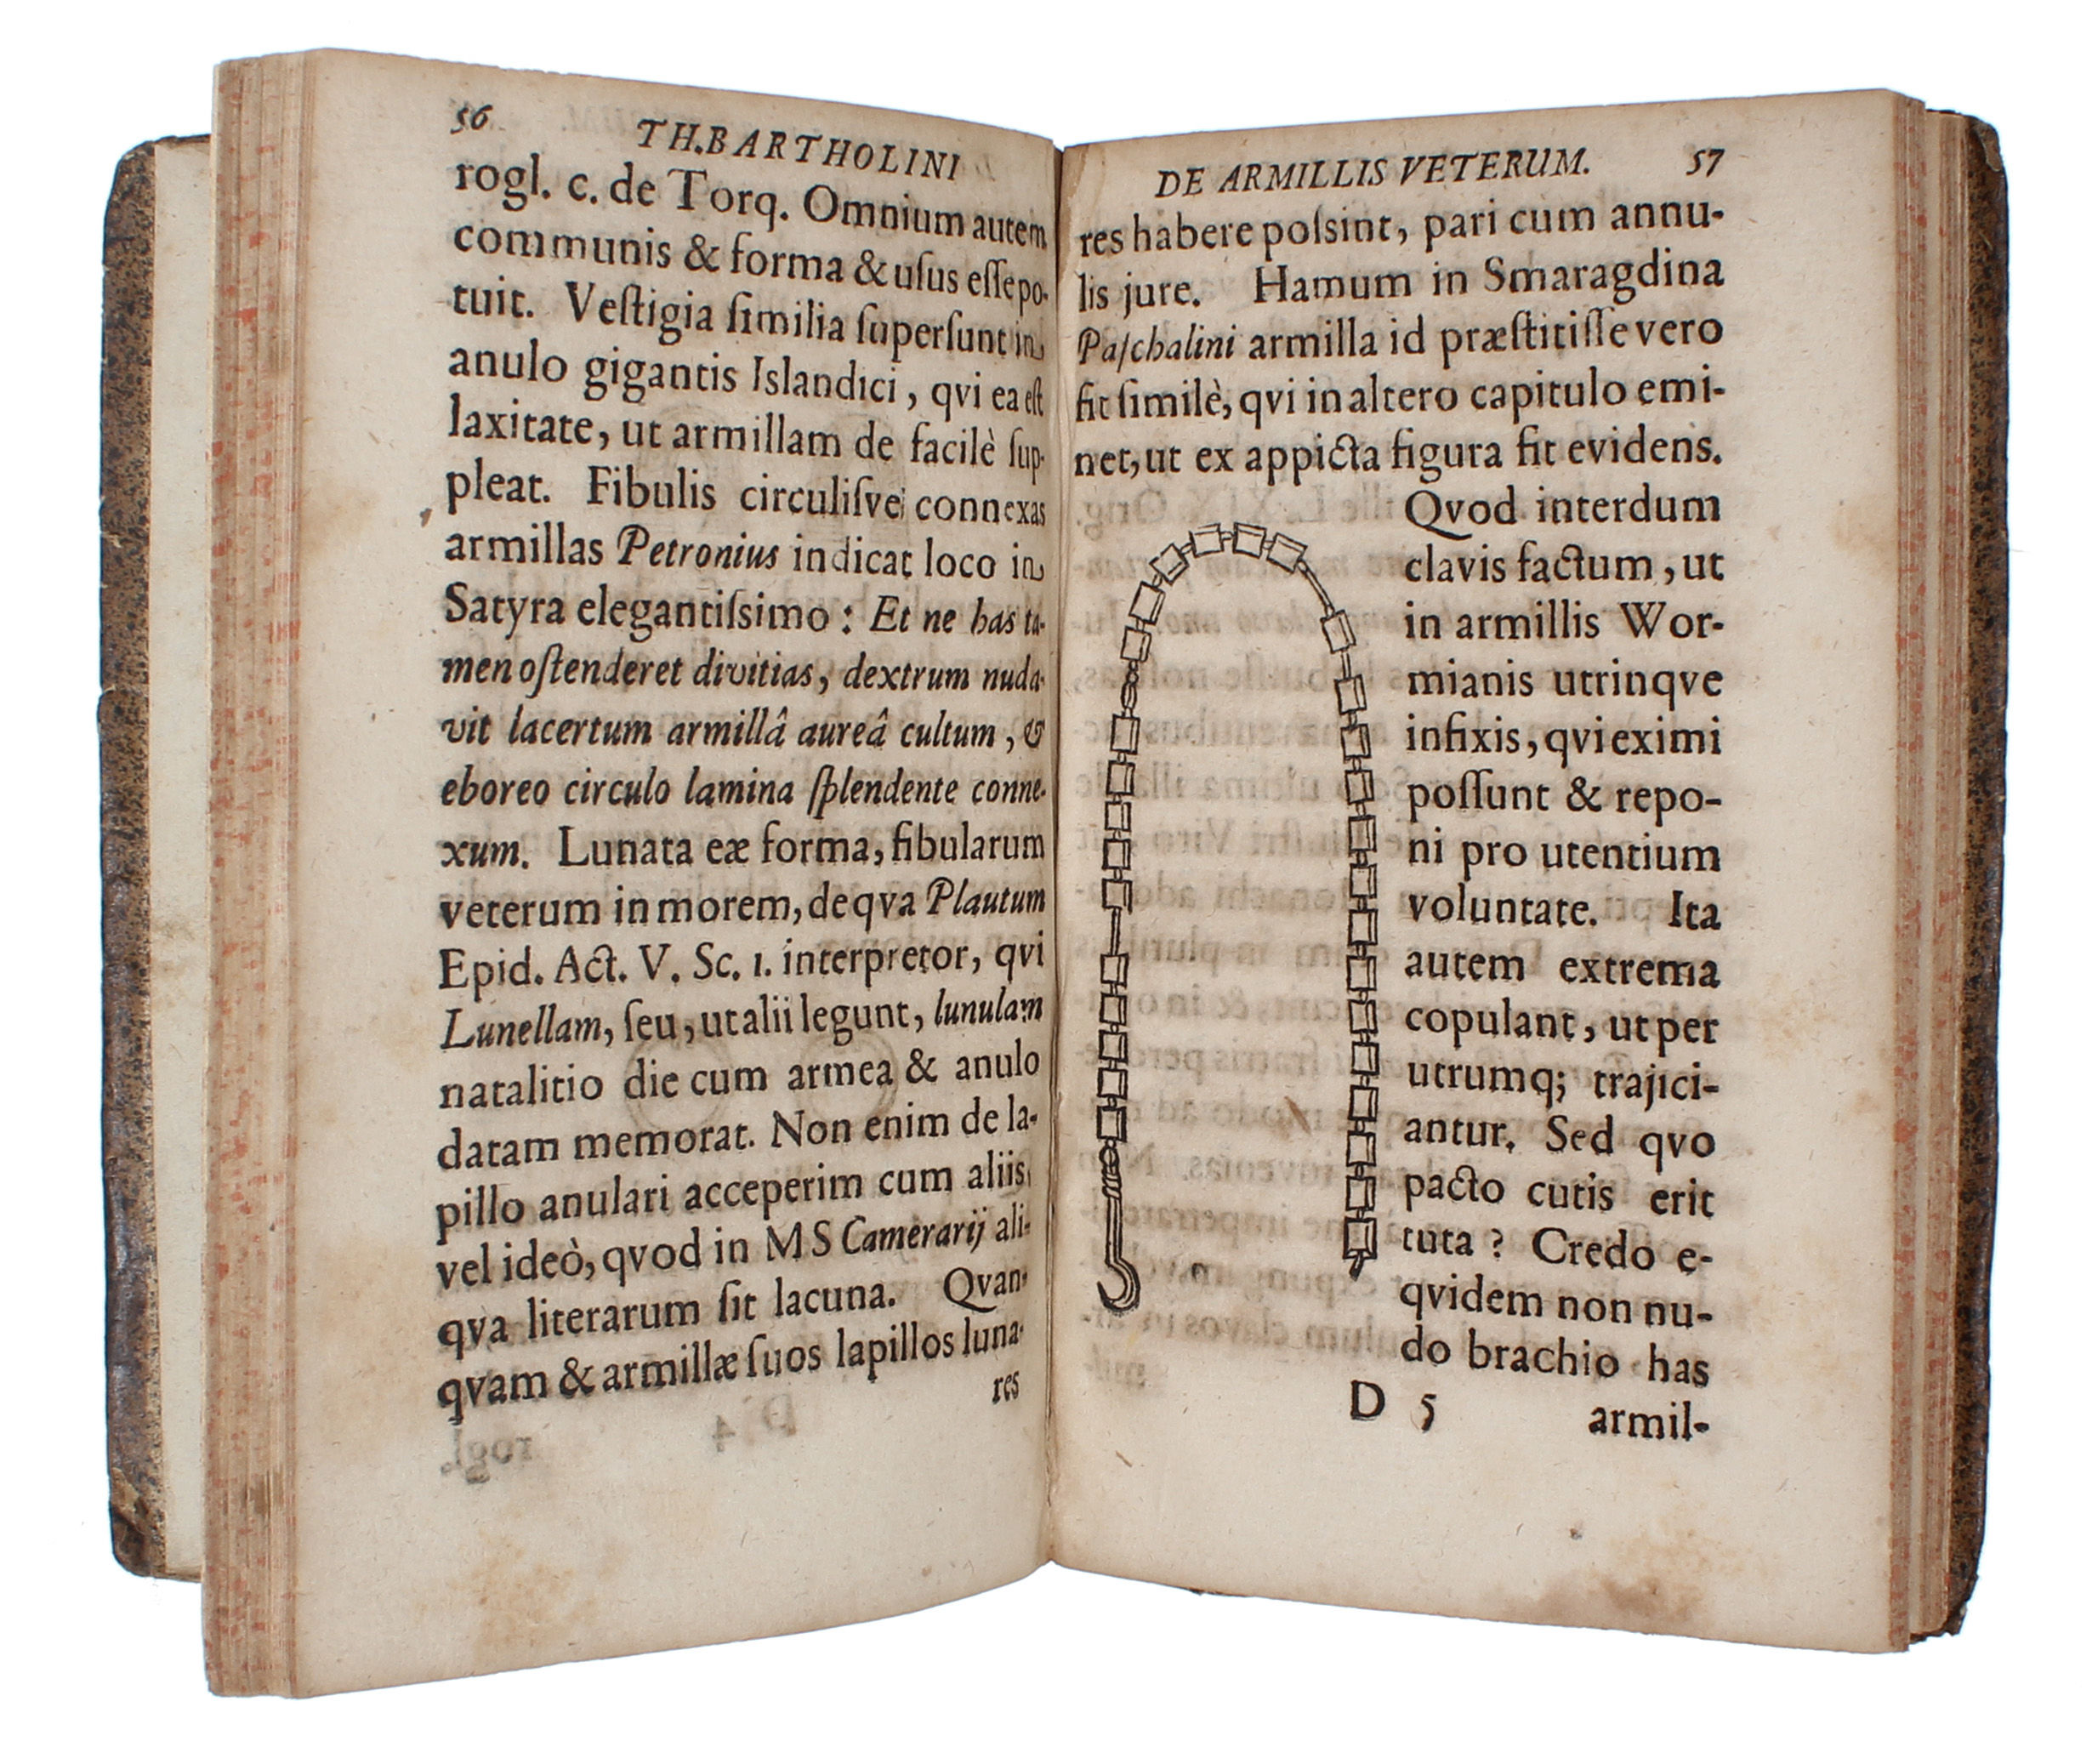 56
TH. BARTHOLINI
rogl. c. de Torq. Omnium autem
communis & forma & uſus eſſe po-
tuit. Veſtigia ſimilia ſuperſunt in
anulo gigantis Islandici, qvi ea eſt
laxitate, ut armillam de facilè ſup-
pleat. Fibulis circuliſve connexas
armillas Petronius indicat loco in
Satyra elegantiſsimo: Et ne has ta-
men oſtenderet divitias, dextrum nuda-
vit lacertum armillâ aureâ cultum, &
eboreo circulo lamina ſplendente conne-
xum. Lunata eæ forma, fibularum
veterum in morem, de qva Plautum
Epid. Act. V. Sc. 1. interpretor, qvi
Lunellam, ſeu, ut alii legunt, lunulam
natalitio die cum armea & anulo
datam memorat. Non enim de la-
pillo anulari acceperim cum aliis,
vel ideò, qvod in MS Camerarij ali-
qva literarum ſit lacuna. Qvan-
qvam & armillæ ſuos lapillos luna-
res
DE ARMILLIS VETERUM. 57
res habere poſsint, pari cum annu-
lis jure. Hamum in Smaragdina
Paſchalini armilla id præſtitiſſe vero
fit ſimilè, qvi in altero capitulo emi-
net, ut ex appicta figura fit evidens.
Qvod interdum
clavis factum, ut
in armillis Wor-
mianis utrinqve
infixis, qvi eximi
poſſunt & repo-
ni pro utentium
voluntate. Ita
autem extrema
copulant, ut per
utrumq; trajici-
antur. Sed qvo
pacto cutis erit
tuta? Credo e-
qvidem non nu-
do brachio has
D 5 armil-